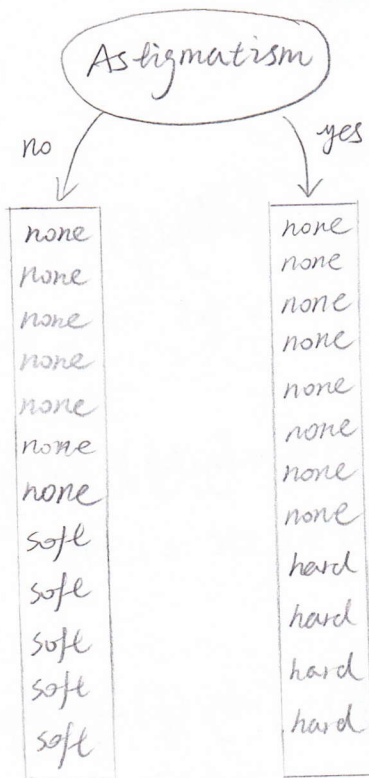 Astigmatism
no
yes
none
none
none
none
none
none
none
soft
soft
soft
soft
soft
none
none
none
none
none
none
none
none
hard
hard
hard
hard